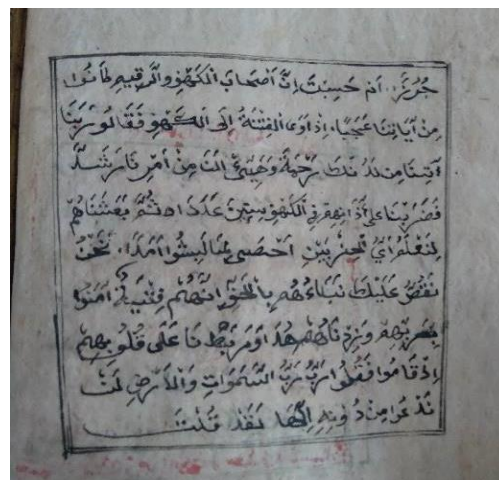 جُرُزًا. اَمْ حَسِبْتَ اِنَّ اَصْحَابَ الْكَهْفِ وَالرَّقِيمِ كَانُوا
مِنْ آيَاتِنَا عَجَبًا، اِذْ اَوَى الْفِتْيَةُ اِلَى الْكَهْفِ فَقَالُو رَبَّنَا
ءَاتِنَا مِنْ لَدُنْكَ رَحْمَةً وَهَيِّئْ لَنَا مِنْ اَمْرِ نَا رَشَدًا
فَضَرَبْنَا عَلَى اٰذَانِهِمْ فِي الْكَهْفِ سِنِينَ عَدَدًا ثُمَّ بَعَثْنَاهُمْ
لِنَعْلَمَ اَيُّ الْحِزْبَيْنِ اَحْصَى لِمَا لَبِثُوا اَمَدًا. نَحْنُ
نَقُصُّ عَلَيْكَ نَبَاءَهُمْ بِالْحَقِّ اِنَّهُمْ فِتْيَةٌ آمَنُوا
بِرَبِّهِمْ وَزِدْ نَاهُمْ هُدًا وَرَبَطْ نَا عَلَى قُلُوبِهِمْ
اِذْ قَامُوا فَقَالُو رَبُّنَا رَبُّ السَّمَوَاتِ وَالْاَرْضِ لَنْ
نَدْعُوَ مِنْ دُونِهِ اِلٰهًا لَقَدْ قُلْنَا